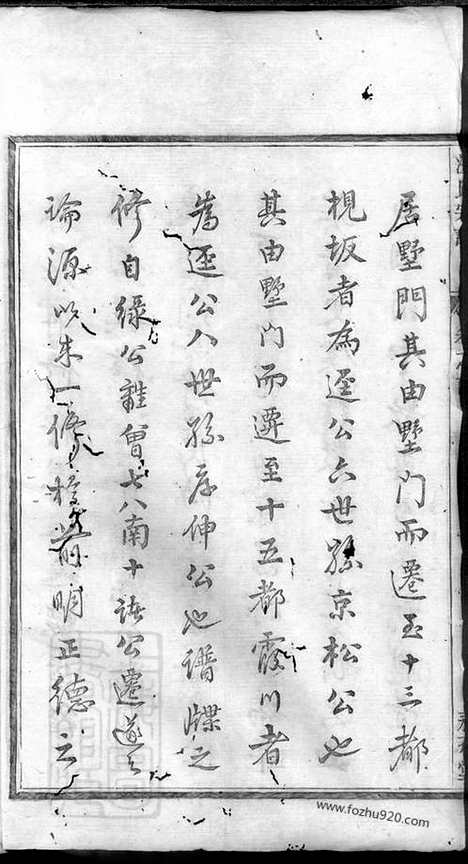 居墅門其由墅门而遷至十三都
梘坂者為逕公六世孫京松公也
其由墅门而遷至十五都霞川者
為逕公八世孫彦伸公也譜牒之
修自綠公難曾七八南十諸公遷遂
論源以朱一修於前明正德之
www.fozhu920.com